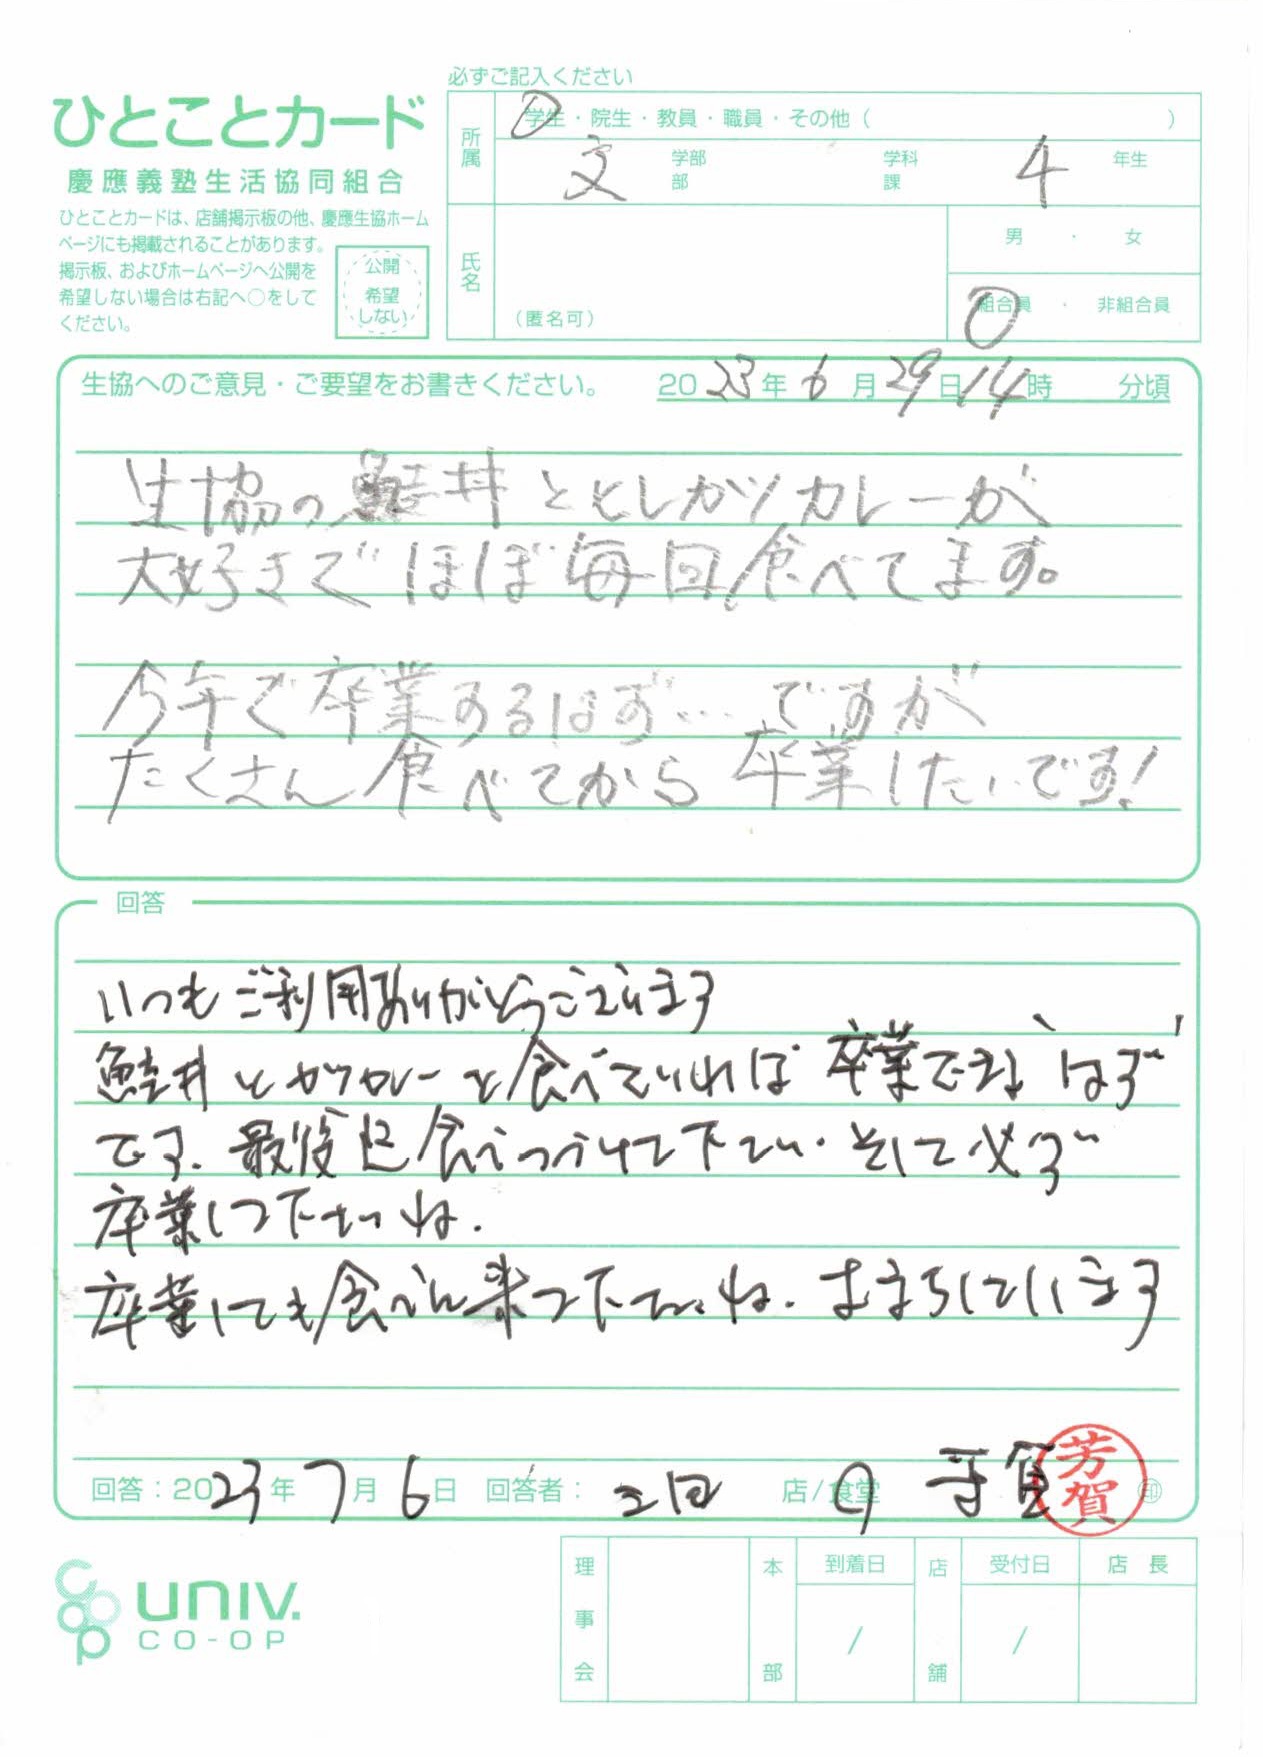 必ずご記入ください
ひとことカード
慶應義塾生活協同組合
ひとことカードは、店舗掲示板の他、慶應生協ホーム
ページにも掲載されることがあります。
掲示板、およびホームページへ公開を
希望しない場合は右記へ○をして
ください。
公開
希望
しない
所属
学生・院生・教員・職員・その他（ ）
文 学部 部 学科 課 4 年生
氏名
（匿名可）
男 ・ 女
組合員 ・ 非組合員
生協へのご意見・ご要望をお書きください。 2023年6月29日14時 分頃
生協の鮭丼とヒレカツカレーが
大好きでほぼ毎回食べてます。
今年で卒業するはず…ですが
たくさん食べてから卒業したいです!
回答
いつもご利用ありがとうございます
鮭丼とカツカレーを食べていれば卒業できる"はず"
です。最後迄食べつづけて下さい。そして必ず
卒業して下さいね。
卒業しても食べに来て下さいね。おまちしています
回答：2023年7月6日 回答者： 三田 店/食堂 芳賀 印
芳賀
UNIV.
CO-OP
理事会
本部
到着日
/
店舗
受付日
/
店長